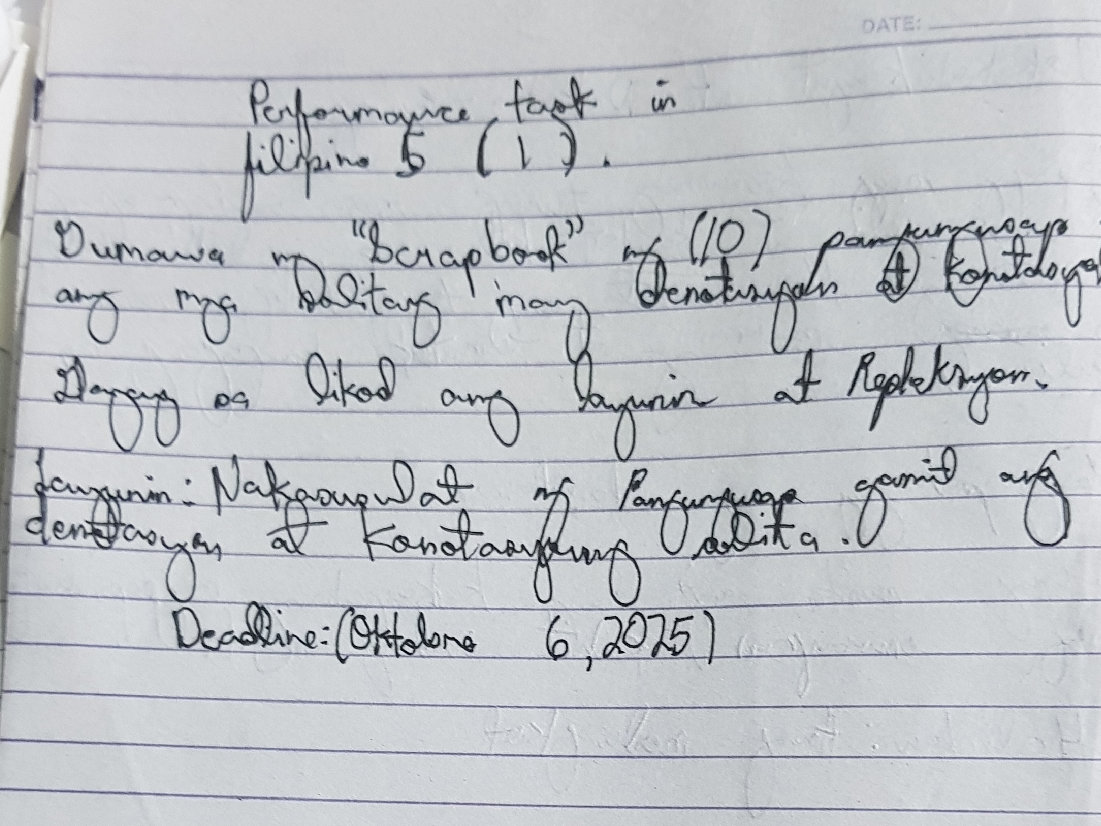 DATE:
Performance task in
filipino 5 (1).
Gumawa ng "Scrapbook" ng (10) pangungusap
ang mga salitang may denotasyon at Konotasyon
Ilagay sa likod ang layunin at Repleksyon.
Layunin: Nakasusulat ng Pangungusap gamit ang
denotasyon at Konotasyong salita.
Deadline: (Oktobre 6, 2025)